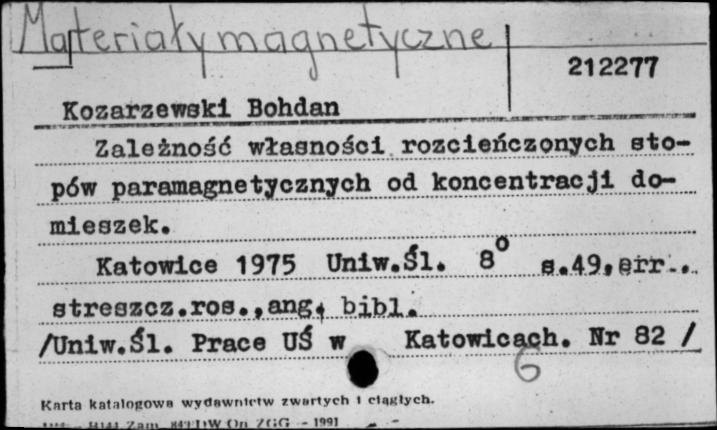 Materiały magnetyczne
212277
Kozarzewski Bohdan
Zależność własności rozcieńczonych sto-
pów paramagnetycznych od koncentracji do-
mieszek.
Katowice 1975 Uniw.Śl. 8⁰ s.49,err..
streszcz.ros.,ang. bibl.
/Uniw.Śl. Prace UŚ w Katowicach. Nr 82 /
6
Karta katalogowa wydawnictw zwartych i ciągłych.
Zam. ZGG - 1991